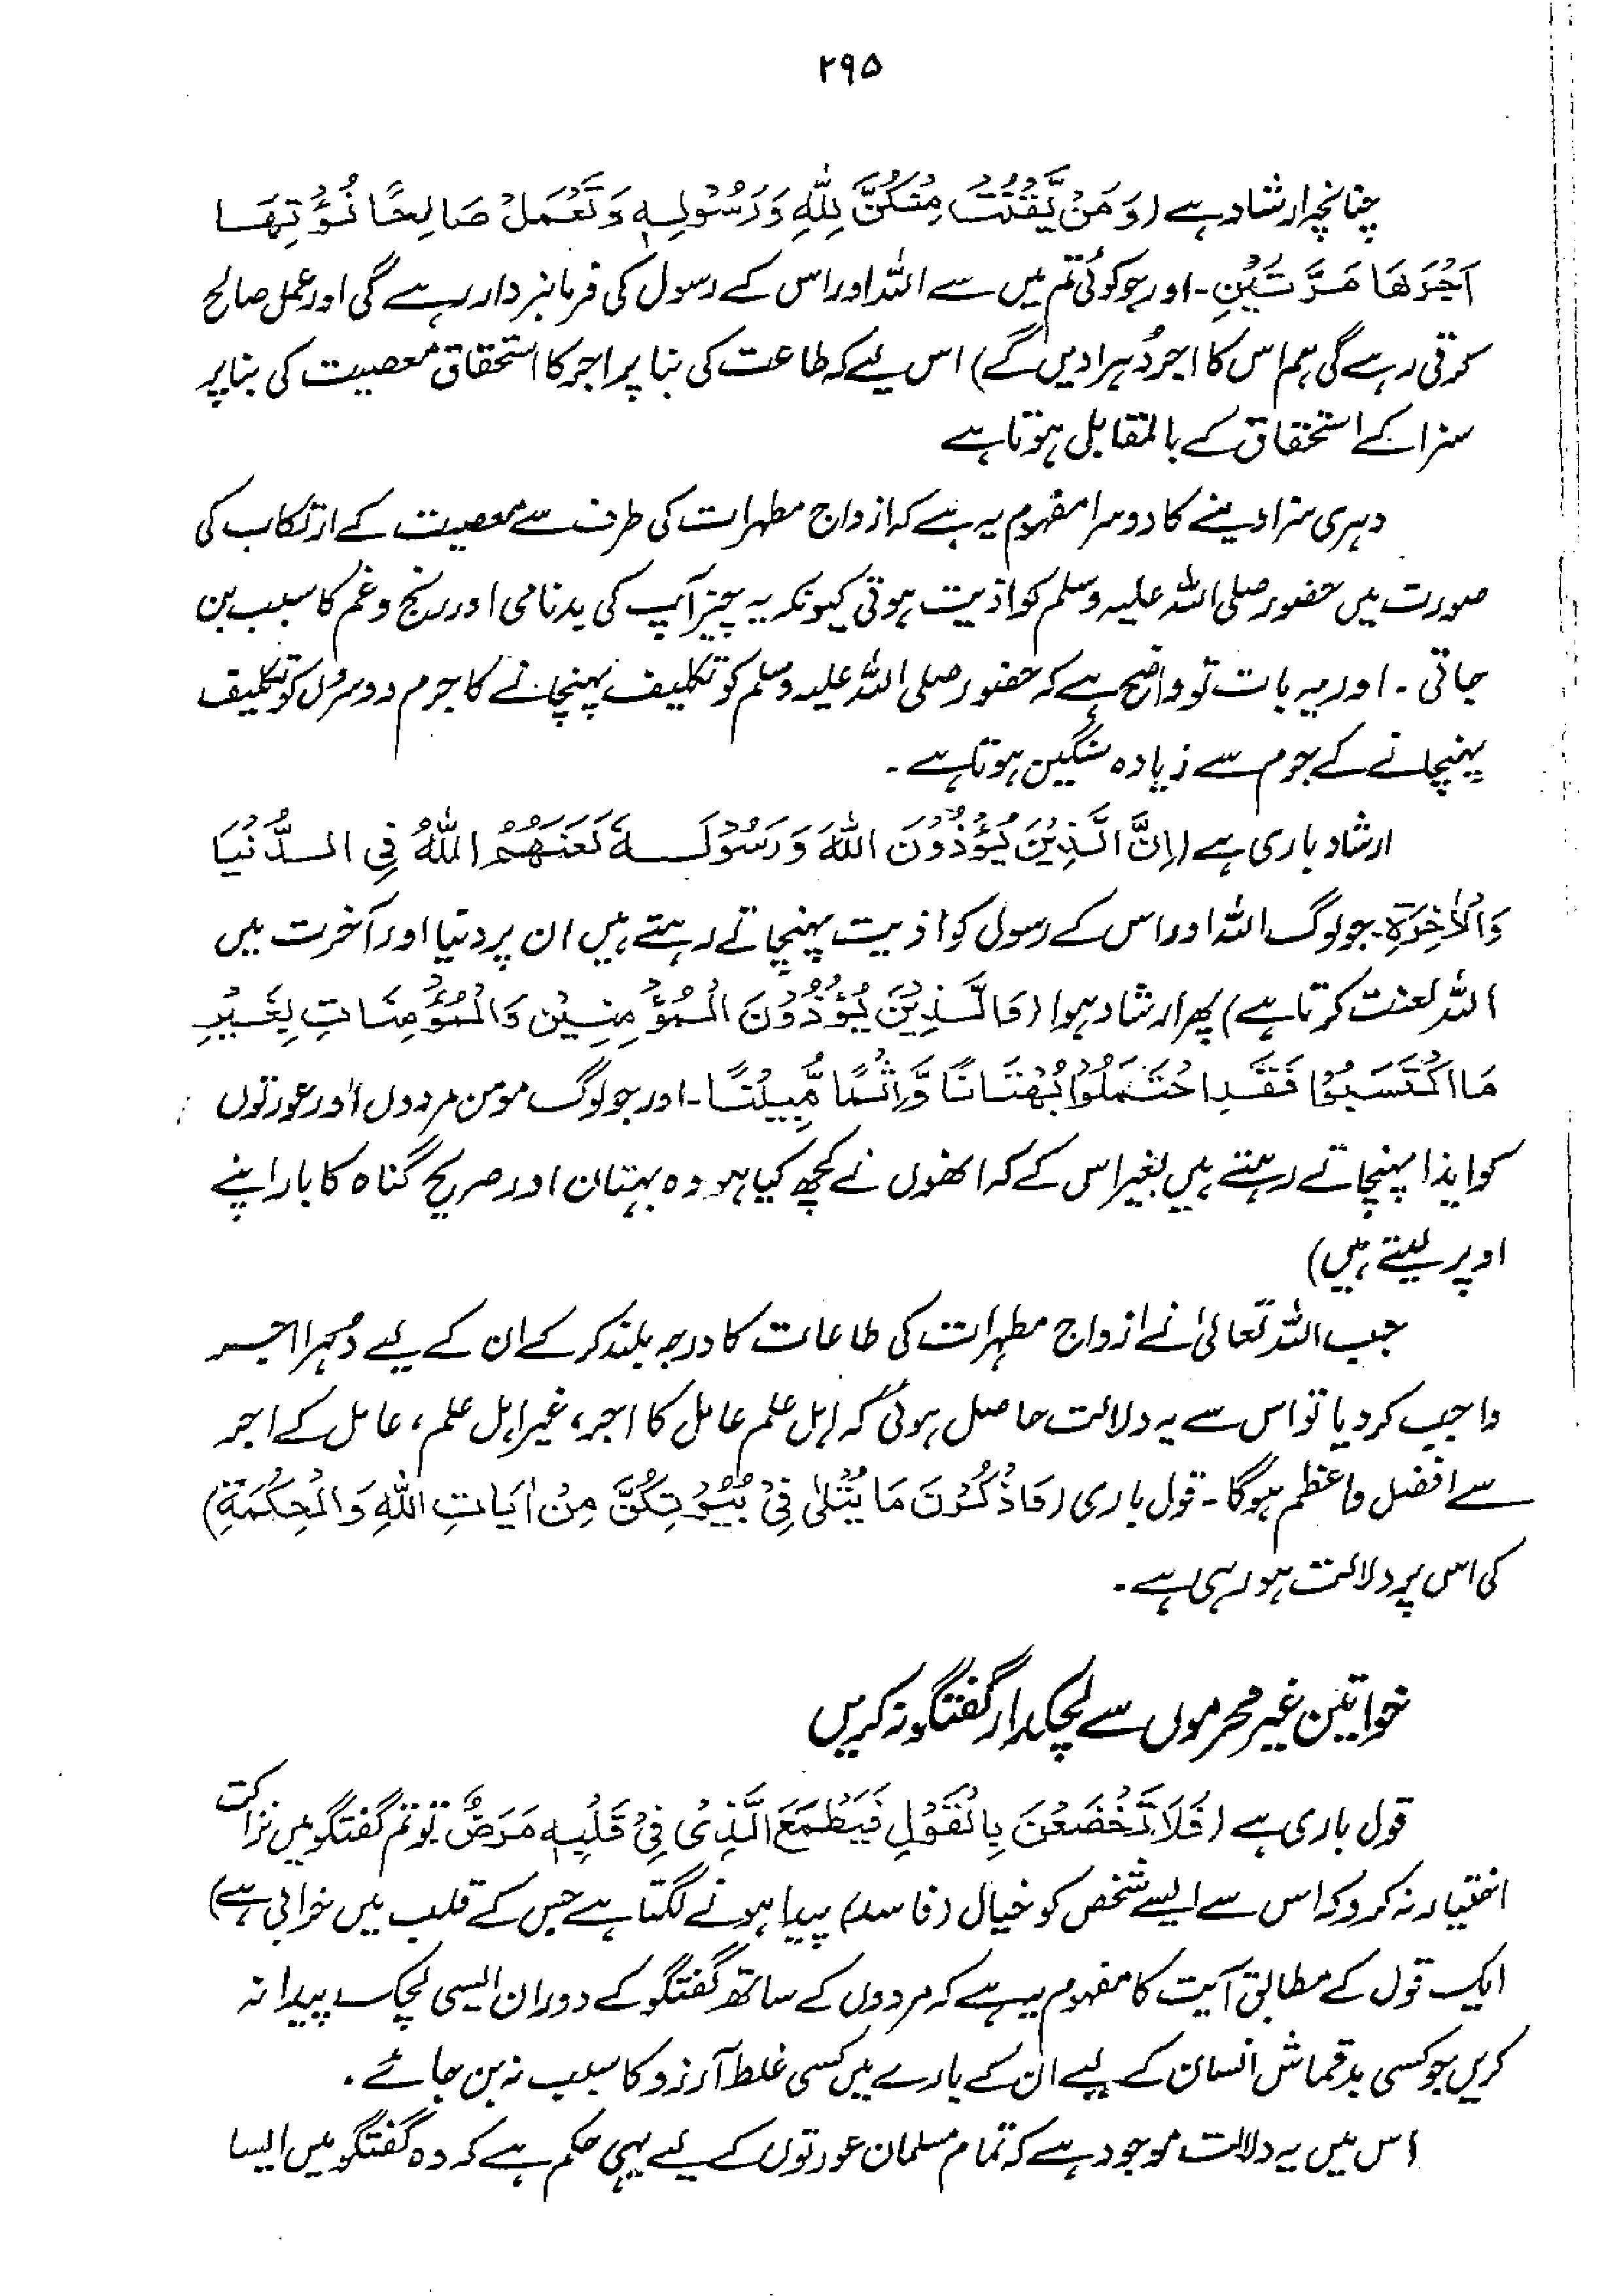 ۲۹۵
چنانچہ ارشاد ہے (وَمَنْ یَّقْنُتْ مِنْکُنَّ لِلّٰہِ وَرَسُوْلِہٖ وَتَعْمَلْ صَالِحًا نُّؤْتِہَا
اَجْرَھَا مَرَّتَیْنِ۔ اور جو کوئی تم میں سے اللہ اور اس کے رسول کی فرمانبردار رہے گی اور عمل صالح
کرتی رہے گی ہم اس کا اجر دُہرا دیں گے) اس لیے کہ طاعت کی بنا پر اجر کا استحقاق معصیت کی بنا پر
سزا کے استحقاق کے بالمقابل ہوتا ہے
دہری سزا دینے کا دوسرا مفہوم یہ ہے کہ ازواج مطہرات کی طرف سے معصیت کے ارتکاب کی
صورت میں حضور صلی اللہ علیہ وسلم کو اذیت ہوتی کیونکہ یہ چیز آپ کی بدنامی اور رنج وغم کا سبب بن
جاتی ۔ اور یہ بات تو واضح ہے کہ حضور صلی اللہ علیہ وسلم کو تکلیف پہنچانے کا جرم دوسروں کو تکلیف
پہنچانے کے جرم سے زیادہ سنگین ہوتا ہے ۔
ارشاد باری ہے (اِنَّ الَّذِیْنَ یُؤْذُوْنَ اللہَ وَرَسُوْلَہٗ لَعَنَھُمُ اللہُ فِی الدُّنْیَا
وَالْاٰخِرَۃِ۔ جو لوگ اللہ اور اس کے رسول کو اذیت پہنچاتے رہتے ہیں ان پر دنیا اور آخرت میں
اللہ لعنت کرتا ہے) پھر ارشاد ہوا (وَالَّذِیْنَ یُؤْذُوْنَ الْمُؤْمِنِیْنَ وَالْمُؤْمِنَاتِ بِغَیْرِ
مَا اکْتَسَبُوْا فَقَدِ احْتَمَلُوْا بُھْتَانًا وَّاِثْمًا مُّبِیْنًا۔ اور جو لوگ مومن مردوں اور عورتوں
کو ایذا پہنچاتے رہتے ہیں بغیر اس کے کہ انھوں نے کچھ کیا ہو وہ بہتان اور صریح گناہ کا بار اپنے
اوپر لیتے ہیں)
جب اللہ تعالیٰ نے ازواج مطہرات کی طاعات کا درجہ بلند کر کے ان کے لیے دُہرا اجر
واجب کر دیا تو اس سے یہ دلالت حاصل ہوئی کہ اہل علم عامل کا اجر، غیر اہل علم، عامل کے اجر
سے افضل واعظم ہوگا۔ قول باری (وَاذْکُرْنَ مَا یُتْلٰی فِیْ بُیُوْتِکُنَّ مِنْ اٰیَاتِ اللہِ وَالْحِکْمَۃِ)
کی اس پر دلالت ہو رہی ہے ۔
خواتین غیر محرموں سے لچکدار گفتگو نہ کریں
قول باری ہے (فَلَا تَخْضَعْنَ بِالْقَوْلِ فَیَطْمَعَ الَّذِیْ فِیْ قَلْبِہٖ مَرَضٌ تو تم گفتگو میں نزاکت
اختیار نہ کرو کہ اس سے ایسے شخص کو خیال (فاسد) پیدا ہونے لگتا ہے جس کے قلب میں خرابی ہے)
ایک قول کے مطابق آیت کا مفہوم یہ ہے کہ مردوں کے ساتھ گفتگو کے دوران ایسی لچک پیدا نہ
کریں جو کسی بدقماش انسان کے لیے ان کے بارے میں کسی غلط آرزو کا سبب نہ بن جائے ۔
اس میں یہ دلالت موجود ہے کہ تمام مسلمان عورتوں کے لیے یہی حکم ہے کہ وہ گفتگو میں ایسا